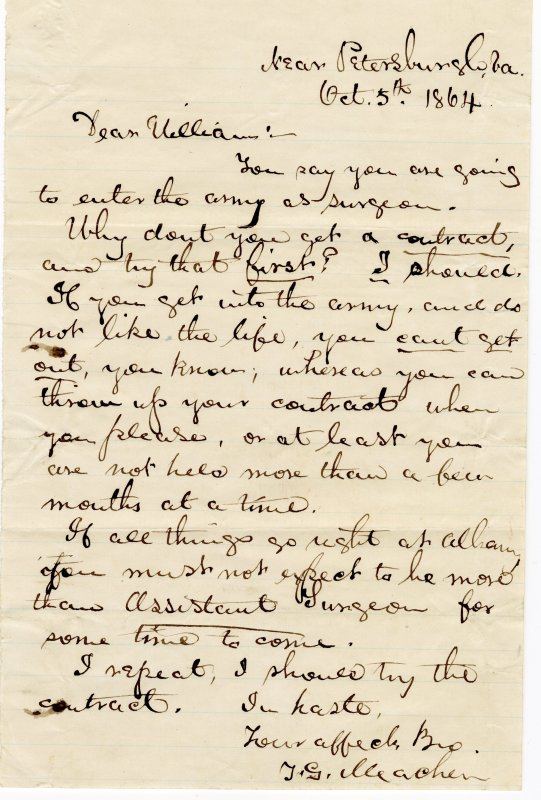 Near Petersburgh, Va.
Oct. 5th. 1864.
Dear William:—
You say you are going
to enter the army as surgeon.
Why dont you get a contract,
and try that first? I should.
If you get into the army, and do
not like the life, you cant get
out, you know; whereas you can
throw up your contract when
you please, or at least you
are not held more than a few
months at a time.
If all things go right at Albany,
you must not expect to be more
than Assistant Surgeon for
some time to come.
I repeat, I should try the
contract. In haste,
Your affect. Bro.
T.G. Meachem